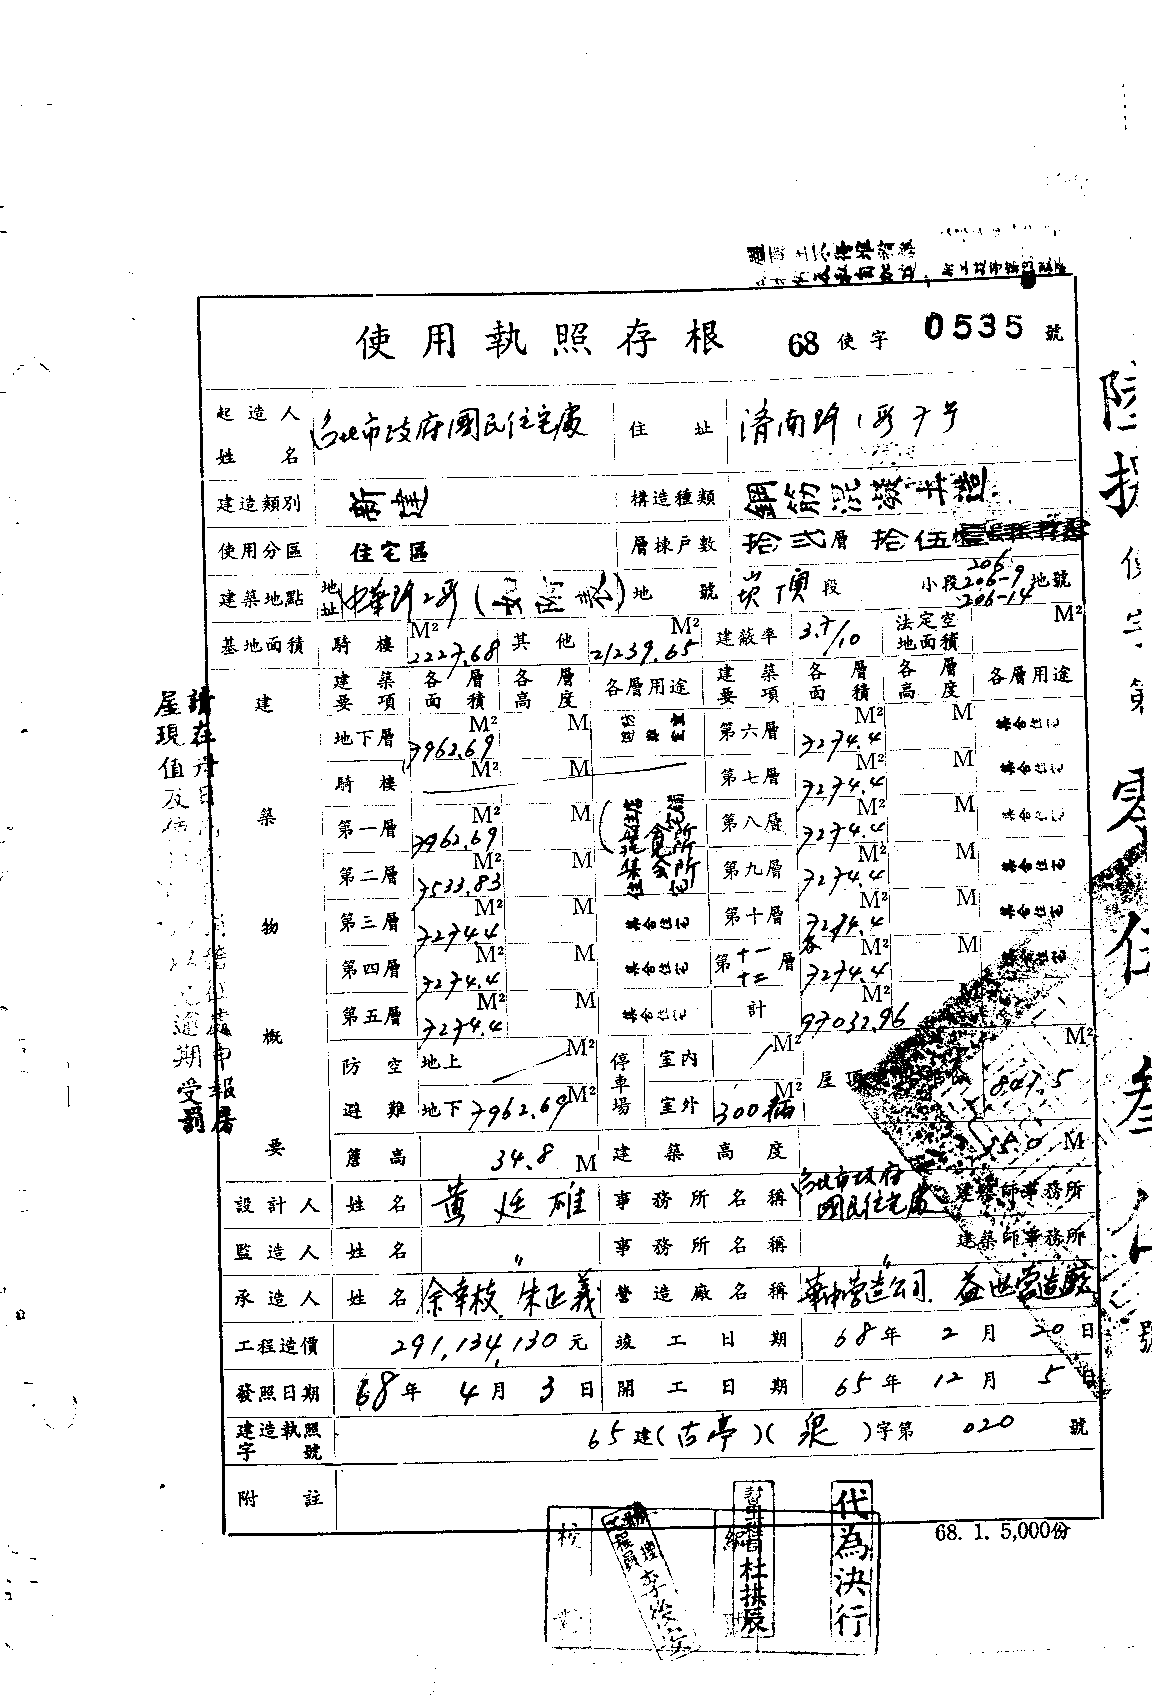 使用執照存根 68使字 0535 號
起造人姓名 台北市政府國民住宅處 住址 濟南路1段7号
建造類別 新建 構造種類 鋼筋混凝土造
使用分區 住宅區 層棟戶數 拾弍層 拾伍
建築地點 地址 中華路2段 地號 崁頂段 小段 206 206-9 206-14 地號
基地面積 騎樓 2227.68 M² 其他 21239.65 M² 建蔽率 3.7/10 法定空地面積 M²
建築物概要 建築要項 各層面積 各層高度 各層用途 建築要項 各層面積 各層高度 各層用途
地下層 7962.69 M² M 第六層 7274.4 M² M 集合住宅
騎樓 M² M 第七層 7274.4 M² M 集合住宅
第一層 7962.69 M² M 第八層 7274.4 M² M 集合住宅
第二層 7533.83 M² M 第九層 7274.4 M² M 集合住宅
第三層 7274.4 M² M 集合住宅 第十層 7274.4 M² M 集合住宅
第四層 7274.4 M² M 集合住宅 第十一十二層 各7274.4 M² M 集合住宅
第五層 7274.4 M² M 集合住宅 計 97032.96 M²
防空避難 地上 M² 停車場 室內 M² 屋頂 847.5 M²
地下 7962.69 M² 室外 300輛 M²
簷高 34.8 M 建築高度 M
設計人 姓名 黃廷雄 事務所名稱 台北市政府國民住宅處 建築師事務所
監造人 姓名 〃 事務所名稱 〃 建築師事務所
承造人 姓名 余幸枝 朱正義 營造廠名稱 華中營造公司 益世營造廠
工程造價 291,134,130元 竣工日期 68年2月20日
發照日期 68年4月3日 開工日期 65年12月5日
建造執照字號 65建(古亭)(泉)字第020號
附註
68. 1. 5,000份
代為決行
校